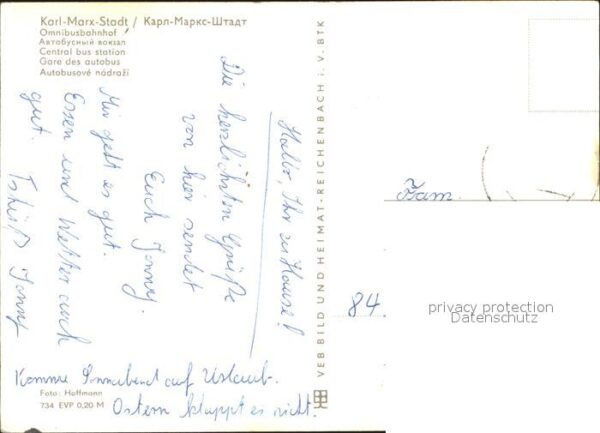 Karl-Marx-Stadt / Карл-Маркс-Штадт
Omnibusbahnhof
Автобусный вокзал
Central bus station
Gare des autobus
Autobusové nádraží
Hallo, Ihr zu Hause!
Die herzlichsten Grüße
von hier sendet
Euch Jonny.
Mir geht es gut.
Essen und Wetter auch
gut.
Tschüß Jonny
Komme Sonnabend auf Urlaub.
Ostern klappt es nicht.
Foto: Hoffmann
734 EVP 0,20 M
VEB BILD UND HEIMAT - REICHENBACH i. V. BTK
Fam.
84.
privacy protection
Datenschutz